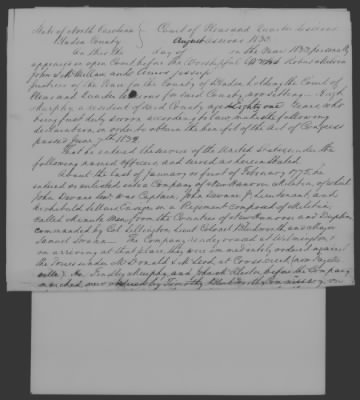 State of North Carolina } Court of Pleas and Quarter Sessions
Bladen County } August sessions 1832
On this the day of in the Year 1832 personally
appeared in open Court before the Worshipful Robinson
John S. McMillan and Jessup
Justices of the Peace for the County of Bladen holding the Court of
Pleas and Quarter Sessions for said County now sitting Hugh
Murphy, a resident of said County aged Eighty one Years who
being first duly sworn according to law makes the following
declaration in order to obtain the benefit of the Act of Congress
passed June 7th 1832.
That he entered the service of the United States under the
following named officers and served as herein stated.
About the last of January or first of February 1775, he
entered or enlisted into a Company of New Hanover Militia, of which
John was Captain, John Lieutenant and
Archibald Ensign in a Regiment composed of Militia,
called Minute Men, from the Counties of New Hanover and Duplin,
commanded by Col. Lillington, Lieut Colonel and Major
Samuel The Company rendezvoused at Wilmington,
on arriving at that place, they were immediately ordered against
the Tories under McDonald & McLeod, at Cross creek, now Fayette
ville. He, Murphy and before the Company
marched were ordered by Timothy Bloodworth, Commissary, to